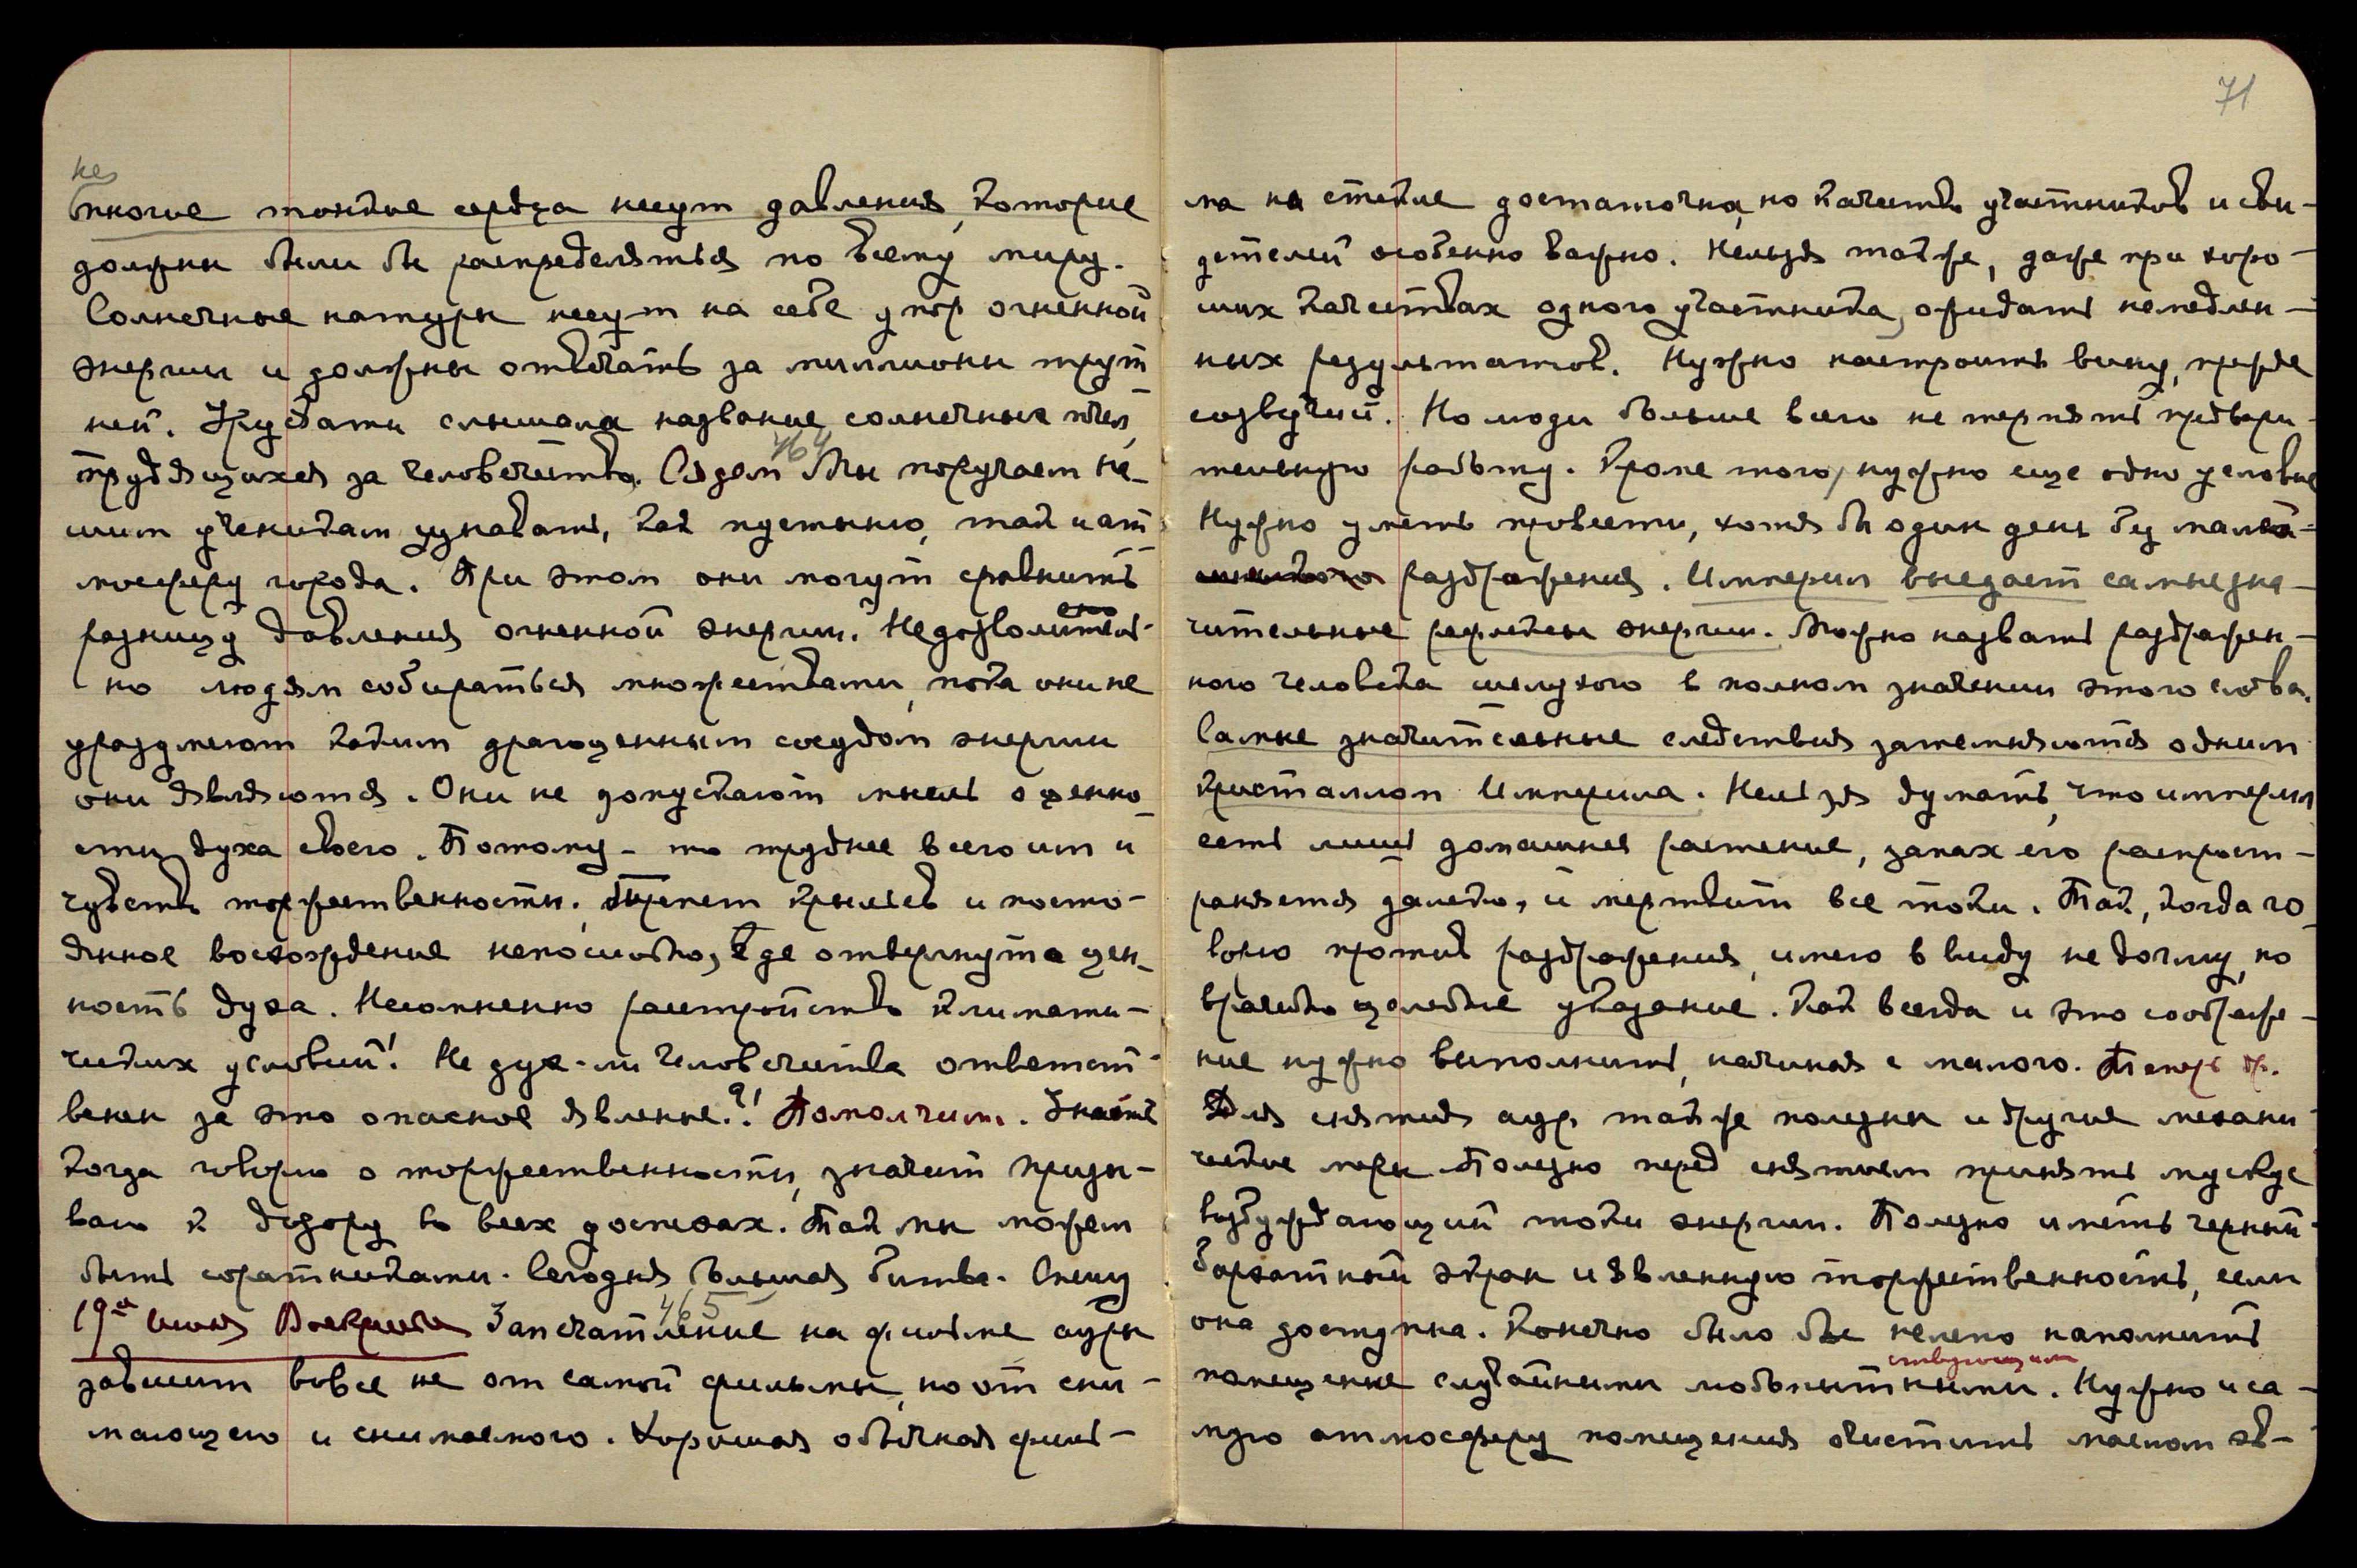 не
многие тонкие сердца несут давления, которые
должны были бы распределяться по всему миру.
Солнечные натуры несут на себе упор огненной
энергии и должны отвечать за миллионы трут
ней. Урусвати слышала название солнечных пчел,
464
трудящихся за человечество. Садем Мы поручаем На-
шим ученикам узнавать, как пустыню, так и ат
мосферу города. При этом они могут сравнить
разницу давления огненной энергии. Недозволитель-
но людям собираться множествами, пока они не
уразумеют каким драгоценным сосудом энергии
они являются. Они не допускают мысль о ценно
сти духа своего. Потому-то труднее всего им и
чувство торжественности. Трепет крыльев и посто-
янное восхождение непосильно, где отвергнута цен-
ность духа. Несомненно расстройство климати-
ческих условий! Не дух-ли Человечества ответст-
венен за это опасное явление?! Помолчим. Знаете
когда говорю о торжественности, значит призы-
ваю к дозору во всех доспехах. Так мы можем
быть соратниками. Сегодня большая битва. Спешу
465
19ое Июня Воскресенье Запечатление на фильме ауры
зависит вовсе не от самой фильмы, но от сни-
мающего и снимаемого. Хорошая обычная филь-
71
ма на стекле достаточна, но качество участников и сви-
детелей особенно важно. Нельзя также, даже при хоро-
ших качествах одного участника, ожидать немедлен-
ных результатов. Нужно настроить вину, прежде
созвучий. Но люди больше всего не терпят предвари-
тельную работу. Кроме того, нужно еще одно условие
Нужно уметь провести, хотя бы один день без малей-
шего раздражения. Империл въедает самые зна-
чительные рефлексы энергии. Можно назвать раздражен-
ного человека шелухою в полном значении этого слова.
Самые значительные следствия затемняются одним
кристаллом Империла. Нельзя думать, что империл
есть лишь домашнее растение, запах его распрост-
раняется далеко, и мертвит все токи. Так, когда го
ворю против раздражения, имею в виду не догму, но
врачебно целебное указание. Как всегда и это соображе-
ние нужно выполнить, начиная с малого. Теперь др.
Для снятия аур также полезны и другие механи
ческие меры. Полезно перед снятием принять мускус
возбуждающий токи энергии. Полезно иметь черный
бархатный экран и явленную торжественность, если
она доступна. Конечно было бы нелепо наполнить
ствующими
помещение случайными любопытными. Нужно и са-
мую атмосферу помещения очистить маслом эв-